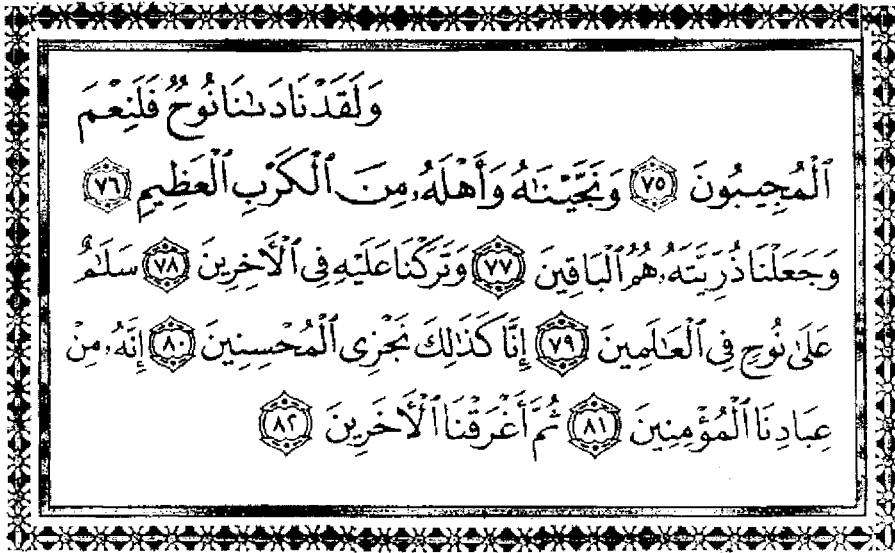 وَلَقَدْ نَادَىٰنَا نُوحٌ فَلَنِعْمَ
ٱلْمُجِيبُونَ ٧٥ وَنَجَّيْنَٰهُ وَأَهْلَهُۥ مِنَ ٱلْكَرْبِ ٱلْعَظِيمِ ٧٦
وَجَعَلْنَا ذُرِّيَّتَهُۥ هُمُ ٱلْبَاقِينَ ٧٧ وَتَرَكْنَا عَلَيْهِ فِى ٱلْأَخِرِينَ ٧٨ سَلَٰمٌ
عَلَىٰ نُوحٍ فِى ٱلْعَٰلَمِينَ ٧٩ إِنَّا كَذَٰلِكَ نَجْزِى ٱلْمُحْسِنِينَ ٨٠ إِنَّهُۥ مِنْ
عِبَادِنَا ٱلْمُؤْمِنِينَ ٨١ ثُمَّ أَغْرَقْنَا ٱلْأَخَرِينَ ٨٢